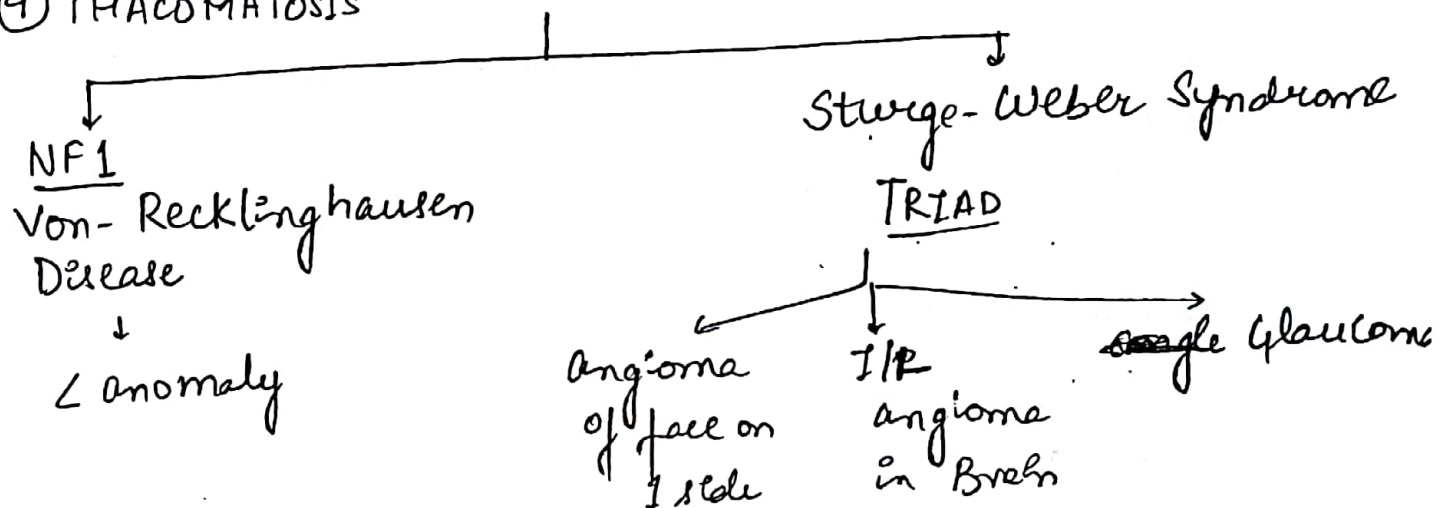 ④ PHACOMATOSIS
NF1
Von- Recklinghausen
Disease
↓
∠ anomaly
Sturge- Weber Syndrome
TRIAD
Angioma
of face on
1 side
I/L
angioma
in Brain
Glaucoma